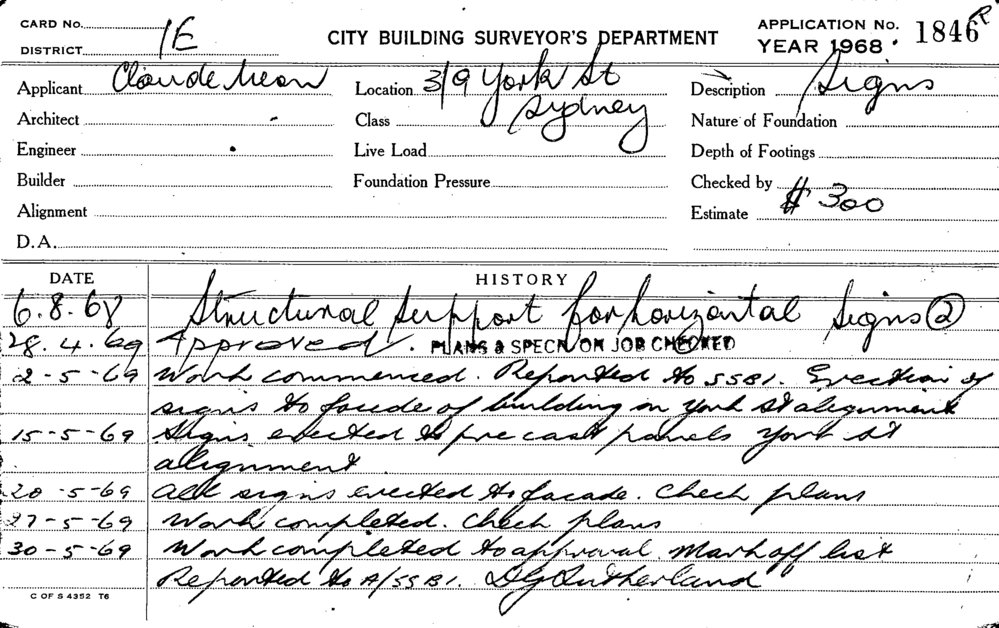 CARD No.
DISTRICT 1E
CITY BUILDING SURVEYOR'S DEPARTMENT
APPLICATION No. 1846 R
YEAR 1968
Applicant Claude Neon
Location 3/9 York St
Sydney
Description Signs
Architect
Class
Nature of Foundation
Engineer
Live Load
Depth of Footings
Builder
Foundation Pressure
Checked by
Alignment
Estimate $300
D.A.
DATE HISTORY
6.8.68 Structural support for horizontal signs (2)
28.4.69 Approved. PLANS & SPECN ON JOB CHECKED
2-5-69 Work commenced. Reported to SSB1. Erection of
signs to facade of building on York St alignment
15-5-69 Signs erected to pre cast panels York St
alignment
20-5-69 All signs erected to facade. Check plans
27-5-69 Work completed. Check plans
30-5-69 Work completed to approval. Mark off list
Reported to A/SSB1. DG Sutherland
C OF S 4352 T6